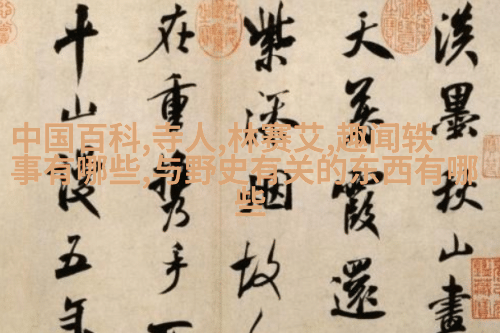 中国百科,寺人,林赛艾,趣闻轶
事有哪些,与野史有关的东西有哪
些
淡墨秋山畫
天暮霞還
紫添烟故
在重攜手
平山謾五年